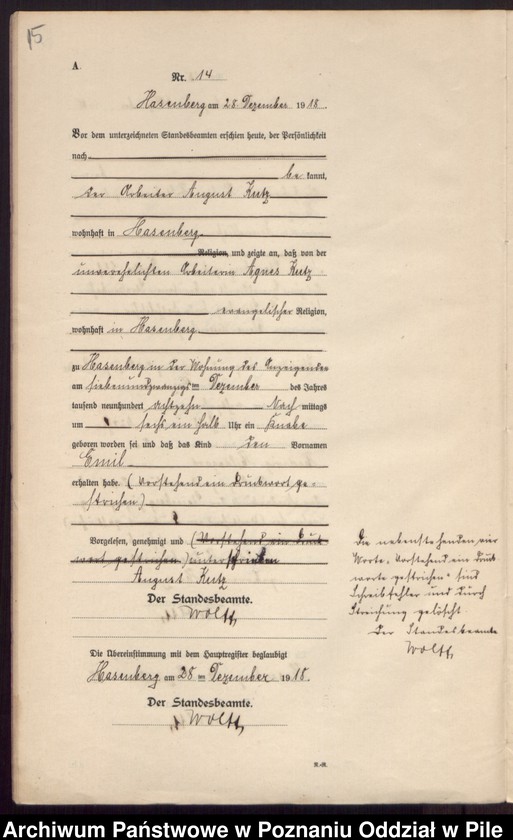 15
A.
Nr. 14
Hasenberg am 28 Dezember 1918.
Vor dem unterzeichneten Standesbeamten erschien heute, der Persönlichkeit
nach
be kannt,
der Arbeiter August Kutz
wohnhaft in Hasenberg
Religion, und zeigte an, daß von der
unverehelichten Arbeiterin Agnes Kutz
evangelischer Religion,
wohnhaft in Hasenberg
zu Hasenberg in der Wohnung des Anzeigenden
am siebenundzwanzigsten Dezember des Jahres
tausend neunhundert achtzehn Nach mittags
um sechs ein halb Uhr ein Knabe
geboren worden sei und daß das Kind den Vornamen
Emil
erhalten habe. (Vorstehend ein Druckwort ge-
strichen)
Vorgelesen, genehmigt und (Vorstehend ein Druck
wort gestrichen) unterschrieben
August Kutz
Der Standesbeamte.
Wolff
Die Übereinstimmung mit dem Hauptregister beglaubigt
Hasenberg am 28 ten Dezember 1918.
Der Standesbeamte.
Wolff
R.-R.
Die nebenstehenden vier
Worte, Vorstehend ein Druck-
worte gestrichen" sind
Schreibfehler und durch
Streichung gelöscht
Der Standesbeamte
Wolff
Archiwum Państwowe w Poznaniu Oddział w Pile